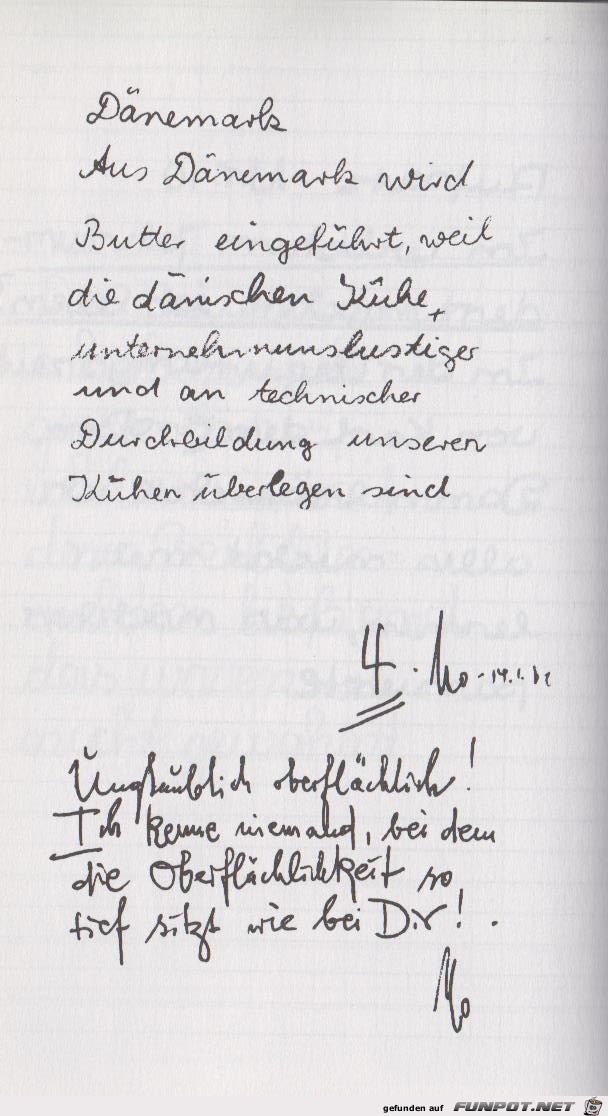 Dänemark
Aus Dänemark wird
Butter eingeführt, weil
die dänischen Kühe
unternehmunslustiger
und an technischer
Durchbildung unseren
Kühen überlegen sind
4. Mo - 14.1.
Unglaublich oberflächlich!
Ich kenne niemand, bei dem
die Oberflächlichkeit so
tief sitzt wie bei Dir!
Mo
gefunden auf FUNPOT.NET